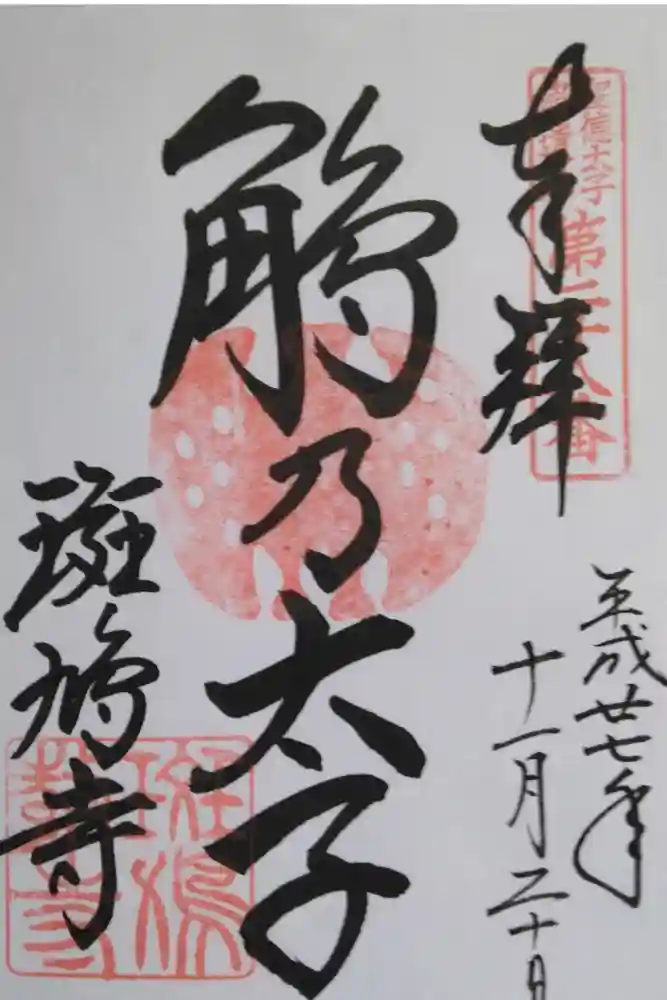 奉拝
聖徳太子
御遺跡
第二十八番
平成廿七年
十一月二十日
鵤乃太子
斑鳩寺